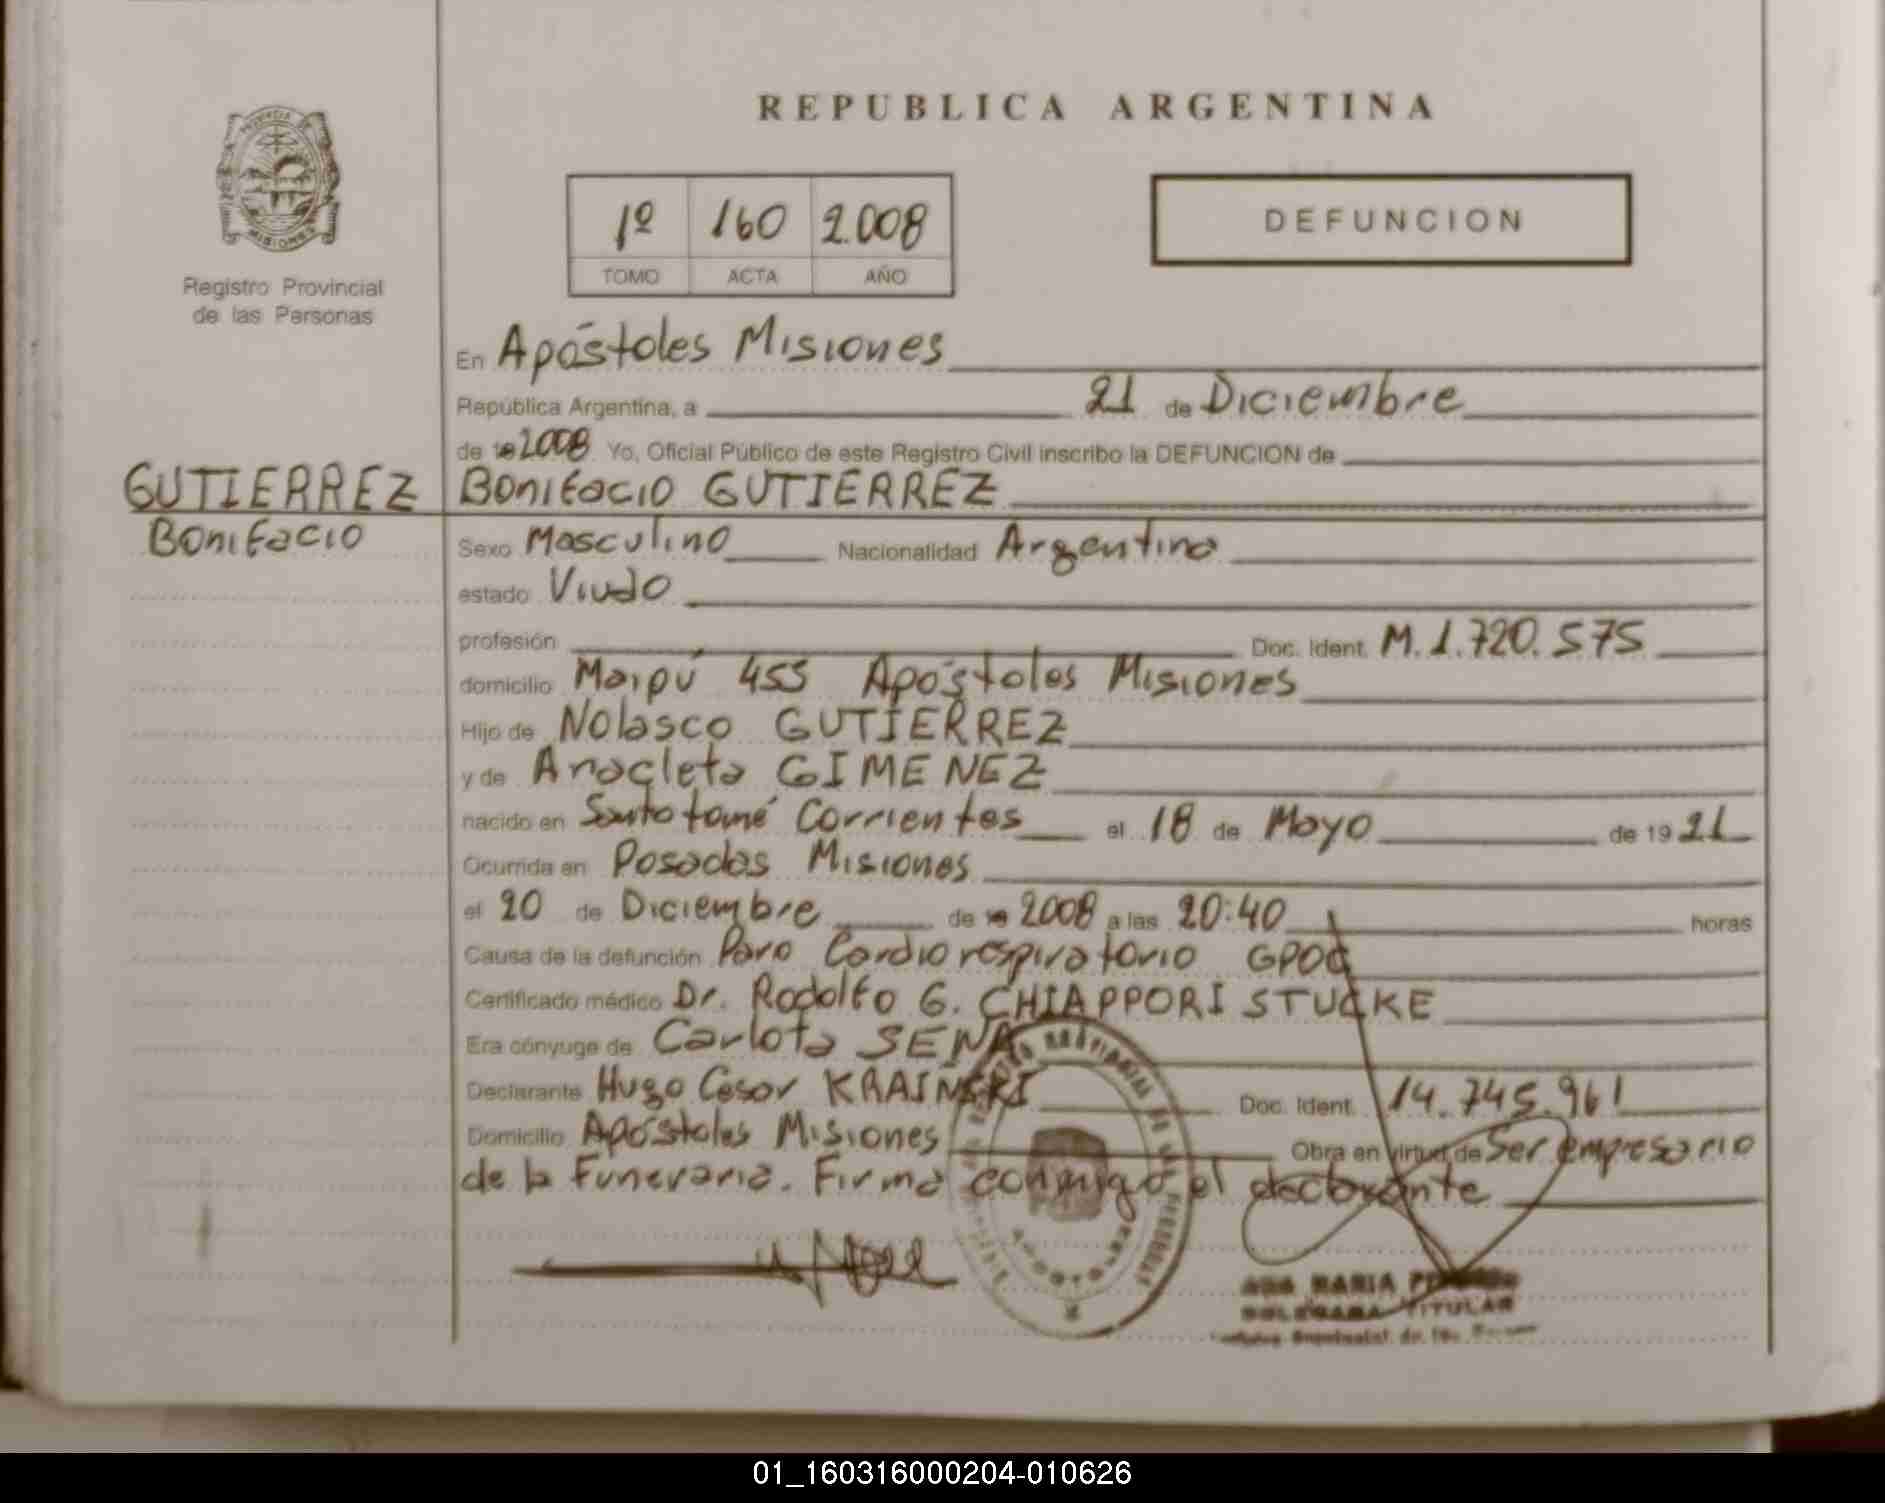 REPUBLICA ARGENTINA
PROVINCIA DE
MISIONES
Registro Provincial
de las Personas
1º 160 2.008
TOMO ACTA AÑO
DEFUNCION
En Apóstoles Misiones
República Argentina, a 21 de Diciembre
de 2008 Yo, Oficial Público de este Registro Civil inscribo la DEFUNCION de
GUTIERREZ
Bonifacio
Bonifacio GUTIERREZ
Sexo Masculino Nacionalidad Argentino
estado Viudo
profesión Doc. Ident. M. 1.720.575
domicilio Maipú 455 Apóstoles Misiones
Hijo de Nolasco GUTIERREZ
y de Anacleta GIMENEZ
nacido en Santo tomé Corrientes el 18 de Mayo de 19 21
Ocurrida en Posadas Misiones
el 20 de Diciembre de 2008 a las 20:40 horas
Causa de la defunción Paro Cardiorespiratorio GPOC
Certificado médico Dr. Rodolfo G. CHIAPPORI STUCKE
Era cónyuge de Carlota SENA
Declarante Hugo Cesar KRAINSKI Doc. Ident. 14.745.961
Domicilio Apóstoles Misiones Obra en virtud de Ser empresario
de la Funeraria. Firma conmigo el declarante
MARIA
TITULAR
01_160316000204-010626